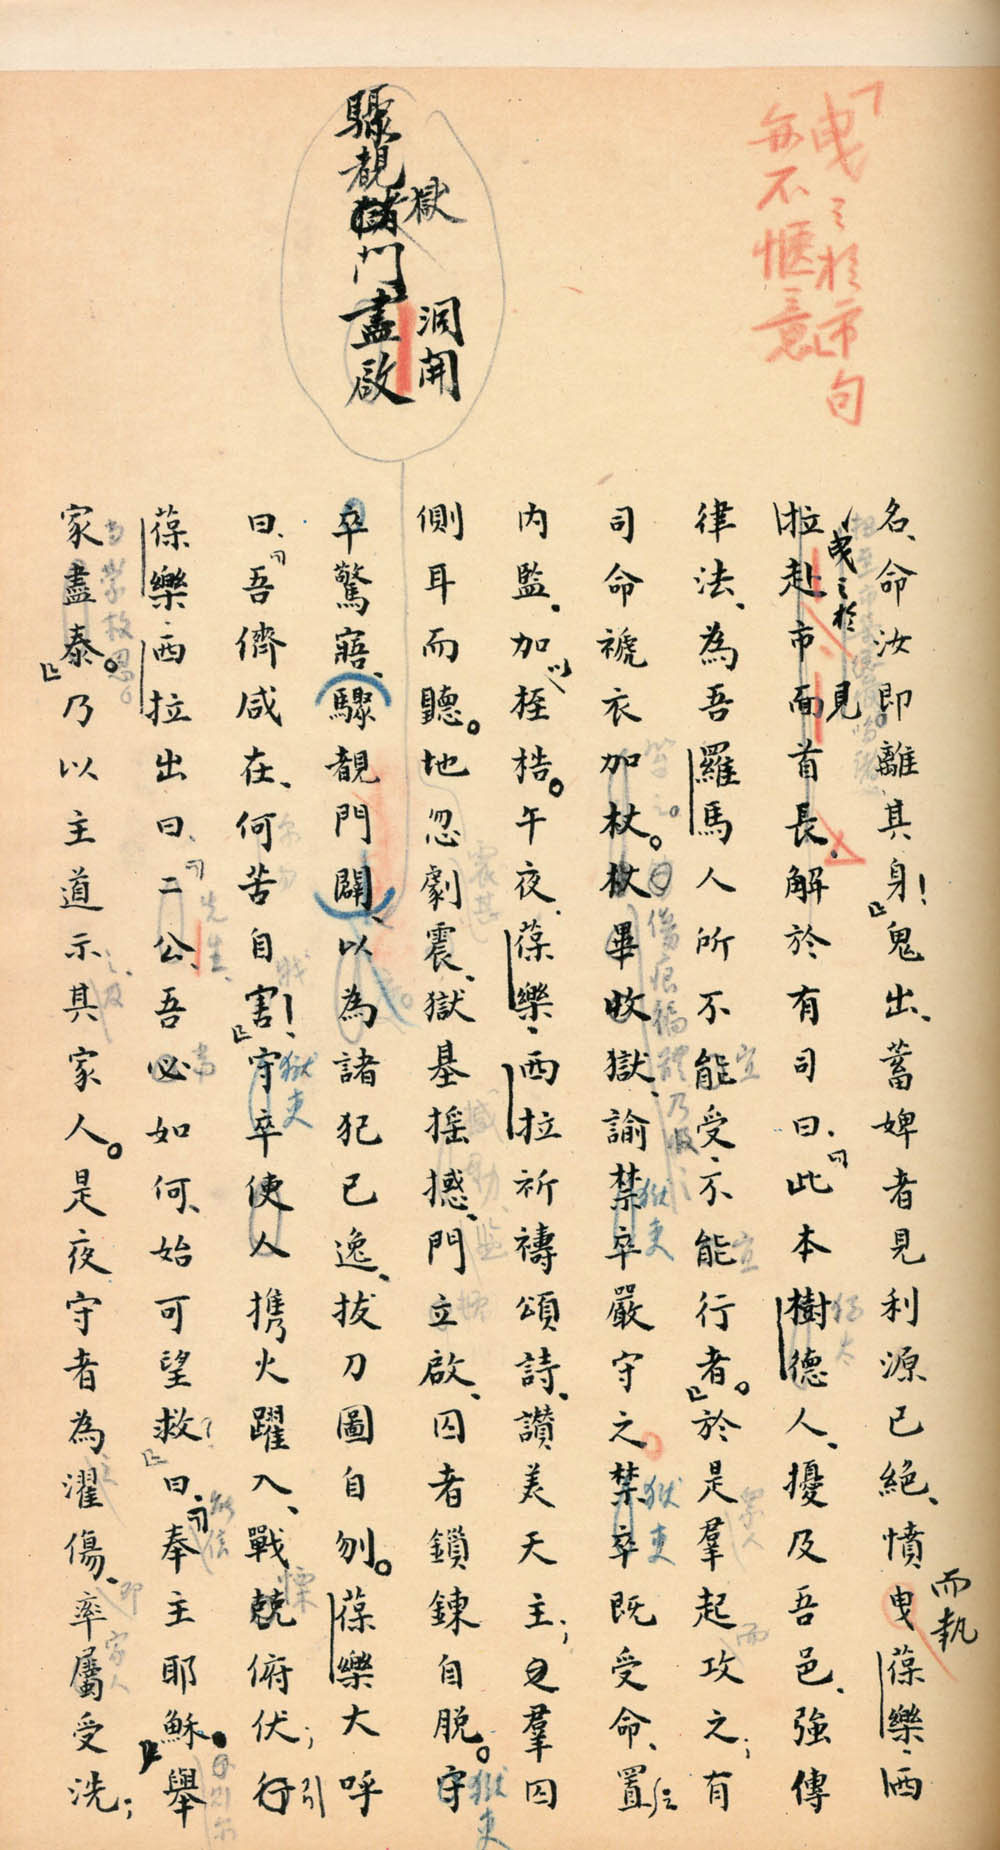 「曳之於市」句
無不愜意
獄
洞開
驟覩獄門盡啟
名、命汝即離其身！』鬼出、蓄婢者見利源已絕、憤曳葆樂、西
而執
拉赴市面首長、解於有司曰、『此本樹德人、擾及吾邑、強傳
曳之於
見
律法、為吾羅馬人所不能受、不能行者。』於是羣起攻之；有
宜
宜
眾人
而
司命褫衣加杖。杖畢收獄、諭禁卒嚴守之。禁卒既受命、置
傷痕徧體乃收
獄吏
獄吏
內監、加桎梏。午夜、葆樂、西拉祈禱頌詩、讚美天主；羣囚
以
側耳而聽。地忽劇震、獄基搖撼、門立啟、囚者鎖鍊自脫。守
震甚
感動
監
獄吏
卒驚寤、驟覩門闢、以為諸犯已逸、拔刀圖自刎。葆樂大呼
曰、『吾儕咸在、何苦自害！』守卒使人攜火躍入、戰兢俯伏；行
獄吏
慄
引
葆樂、西拉出曰、『二公、吾必如何、始可望救？』曰、『奉主耶穌、舉
先生
當
篤信
家盡泰。』乃以主道示其家人。是夜守者為濯傷、率屬受洗；
即
家人